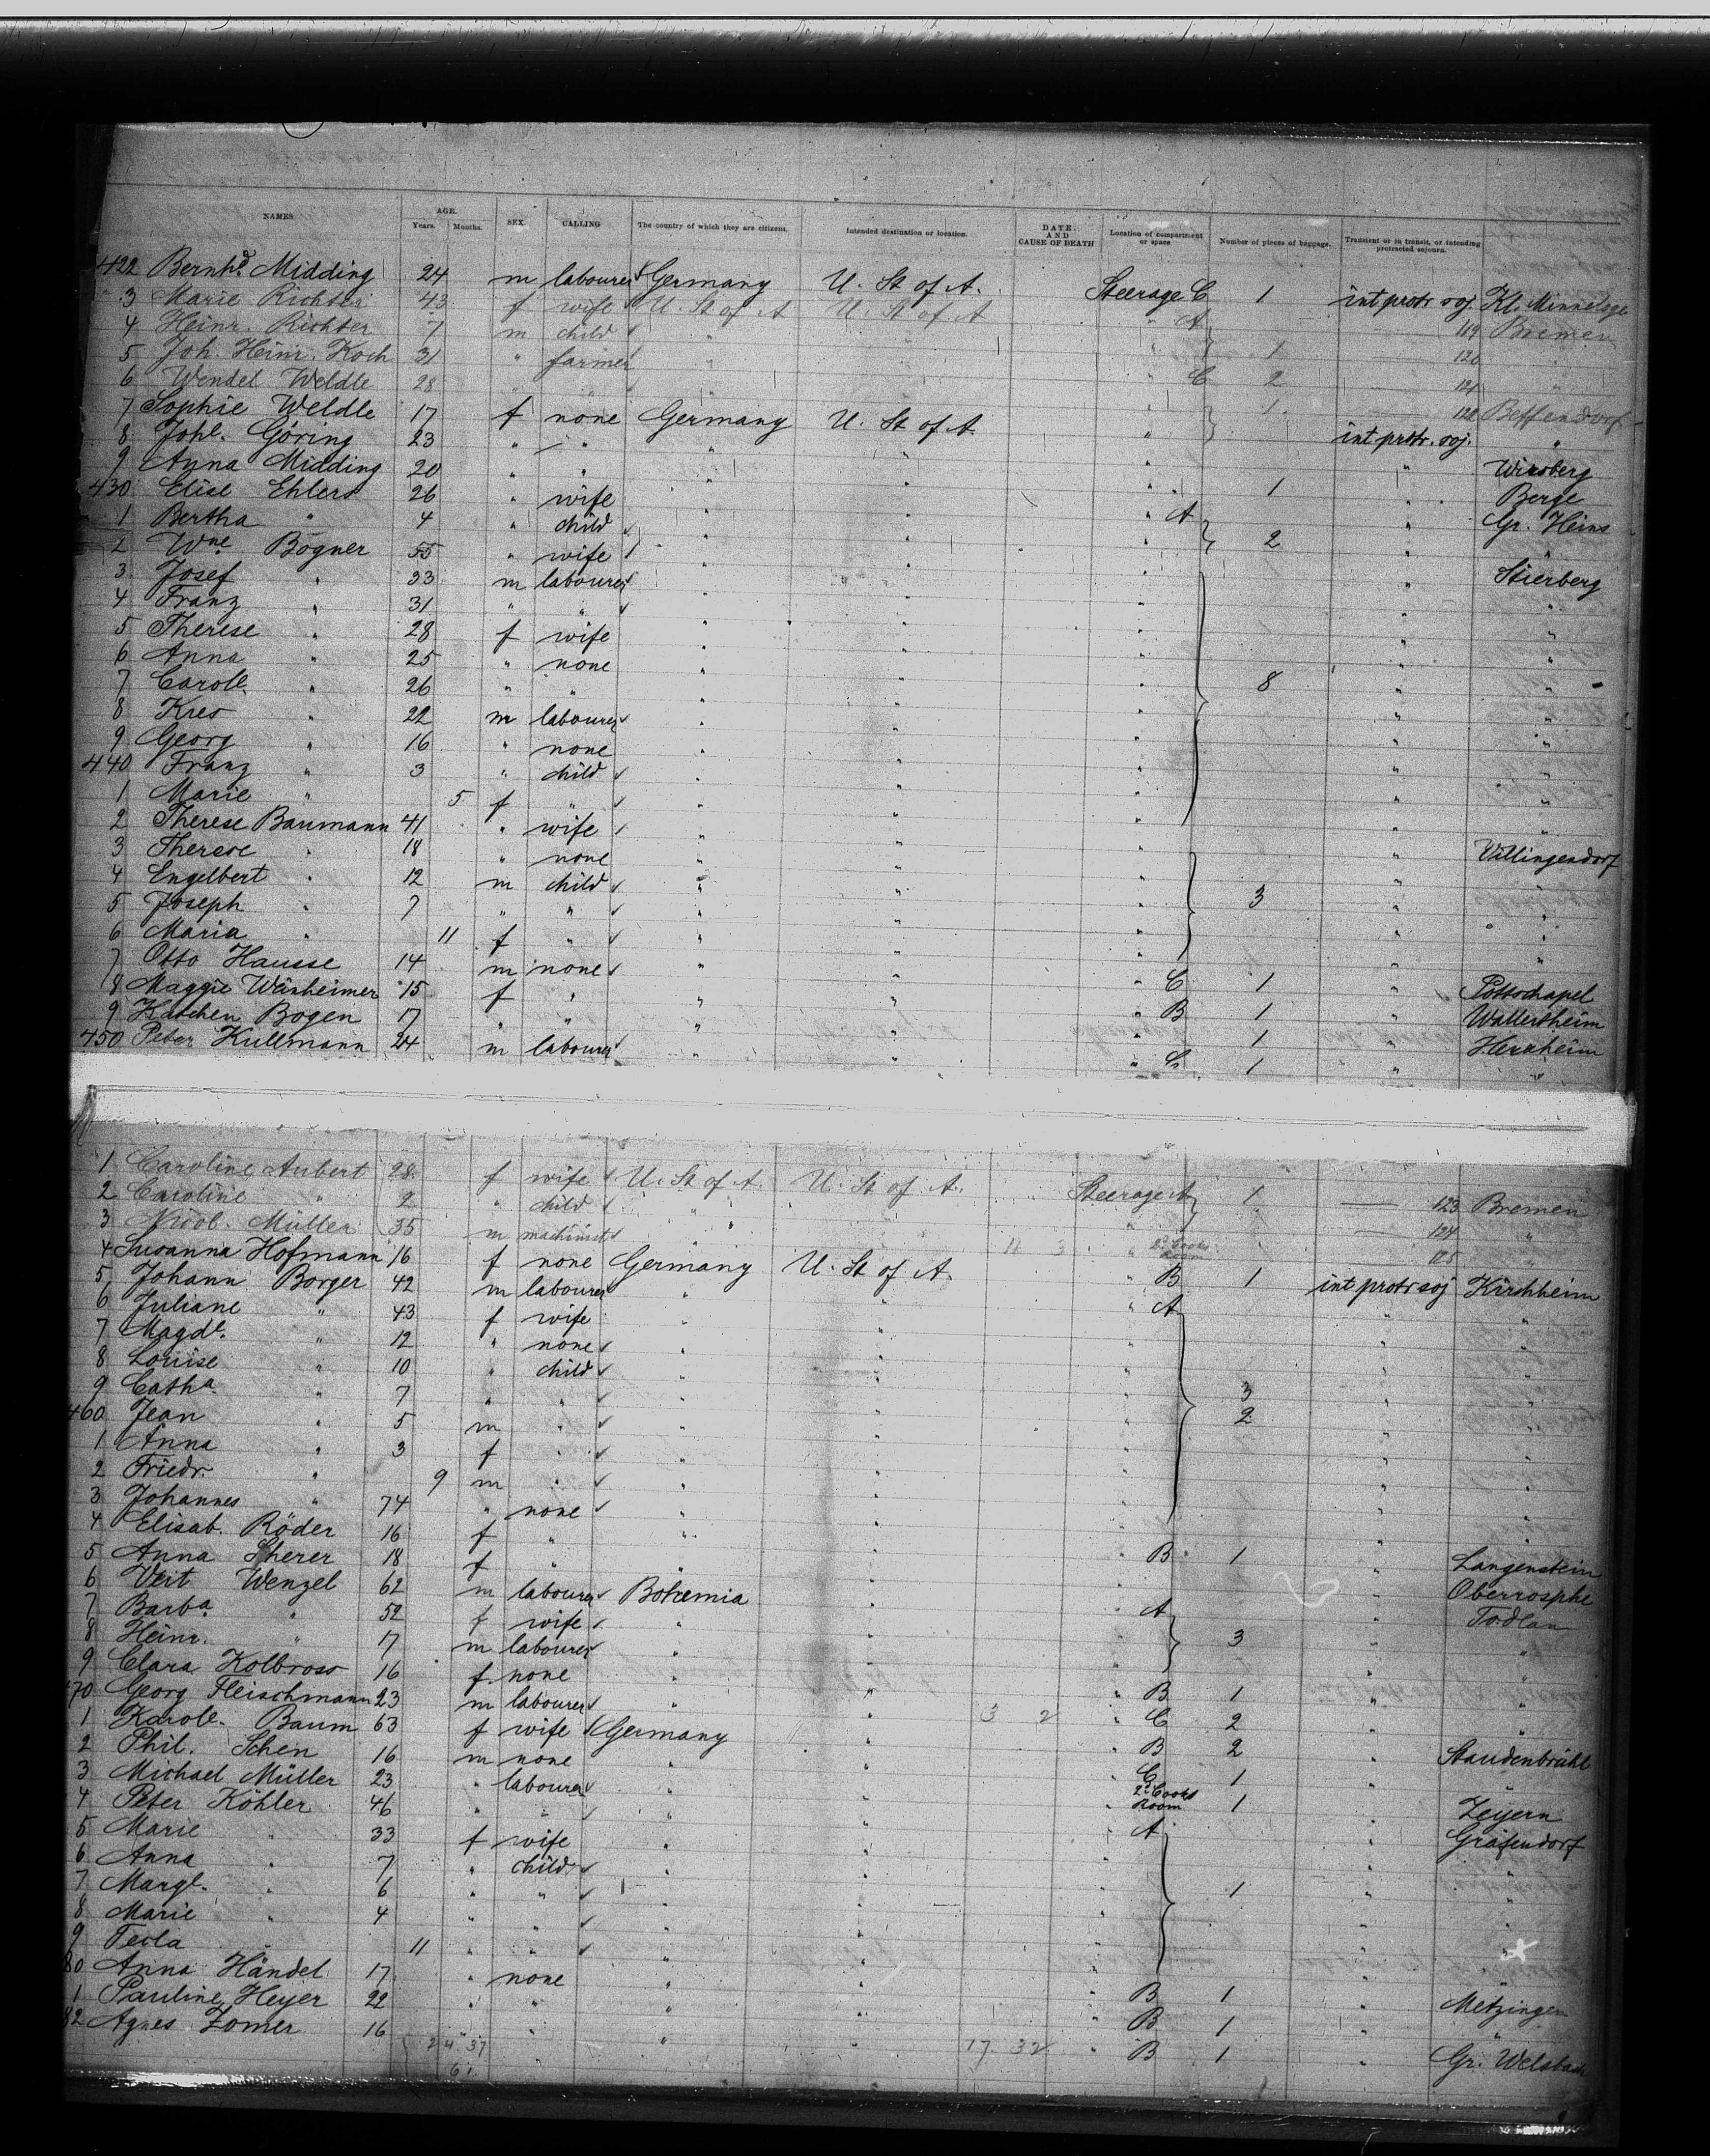 NAMES AGE. Years. Months. SEX. CALLING The country of which they are citizens. Intended destination or location. DATE AND CAUSE OF DEATH Location of compartment or space Number of pieces of baggage. Transient or in transit, or intending protracted sojourn.
422 Bernhd. Midding 24 m labourer Germany U. St of A. Steerage C 1 int protr soj.
3 Marie Richter 43 f wife U. St of A U. St of A " A 119 Bremen
4 Heinr. Richter 7 m child " " " 120 "
5 Joh. Heinr. Koch 31 " farmer " " " C 2 121 "
6 Wendel Weldle 28 " " " " " 1 122 Beffendorf
7 Sophie Weldle 17 f none Germany U. St of A. " int protr. soj. "
8 Johe. Göring 23 " " " " "
9 Anna Midding 20 " " " " " 1 " Berge
430 Elise Ehlers 26 " wife " " " A " Gr. Heins
1 Bertha " 4 " child " " " 2 " "
2 Wne Bogner 55 " wife " " " " Stierberg
3 Josef " 33 m labourer " " " " "
4 Franz " 31 " " " " " " "
5 Therese " 28 f wife " " " " "
6 Anna " 25 " none " " " 8 " "
7 Carole. " 26 " " " " " " "
8 " 22 m labourer " " " " "
9 Georg " 16 " none " " " " "
440 Franz " 3 " child " " " " "
1 Marie " 5 f " " " " " "
2 Therese Baumann 41 " wife " " " " Villingendorf
3 Therese " 18 " none " " " " "
4 Engelbert " 12 m child " " " 3 " "
5 Joseph " 7 " " " " " " "
6 Maria " 11 f " " " " " "
7 Otto Hausse 14 m none " " " C 1 " Pottschapel
8 Maggie 15 f " " " " B 1 " Wallertheim
9 Kätchen Bogen 17 " " " " " 1 " Herxheim
450 Peter Kullmann 24 m labourer " " " C 1 " "
1 Caroline Aubert 28 f wife U. St of A. U. St of A. Steerage A 1 123 Bremen
2 Caroline " 2 " child " " " 124 "
3 Nicol. Müller 35 m machinist " " 11 3 " 2d Cooks Room 125 "
4 Susanna Hofmann 16 f none Germany U. St of A. " B 1 int protr soj Kirchheim
5 Johann Borger 42 m labourer " " " A " "
6 Juliane " 43 f wife " " " " "
7 Magde. " 12 " none " " " " "
8 Louise " 10 " child " " " 3 " "
9 Catha. " 7 " " " " " 2 " "
460 Jean " 5 m " " " " " "
1 Anna " 3 f " " " " " "
2 Friedr. " 9 m " " " " " "
3 Johannes " 74 " none " " " " "
4 Elisab. Röder 16 f " " " " B 1 " Langenstein
5 Anna Scherer 18 f " " " " " Oberrosphe
6 Veit Wenzel 62 m labourer Bohemia " " A "
7 Barba. " 52 f wife " " " 3 " "
8 Heinr. " 17 m labourer " " " " "
9 Clara Kolbross 16 f none " " " B 1 " "
70 Georg Fleischmann 23 m labourer " " 3 2 " C 2 " "
1 Karole. Baum 63 f wife Germany " " B 2 " Staudenbrühl
2 Phil. Schen 16 m none " " " C 1 " "
3 Michael Müller 23 " labourer " " " 2d Cooks Room 1 " Zeyern
4 Peter Köhler 46 " " " " " A " Gräfendorf
5 Marie " 33 f wife " " " " "
6 Anna " 7 " child " " " 1 " "
7 Marge. " 6 " " " " " " "
8 Marie " 4 " " " " " " "
9 Tecla " 11 " " " " " " "
80 Anna Händel 17 " none " " " B 1 " Metzingen
1 Pauline Heyer 22 " " " " " B 1 " "
82 Agnes Zomer 16 " " " " 17 32 " B 1 " Gr. Welsbach